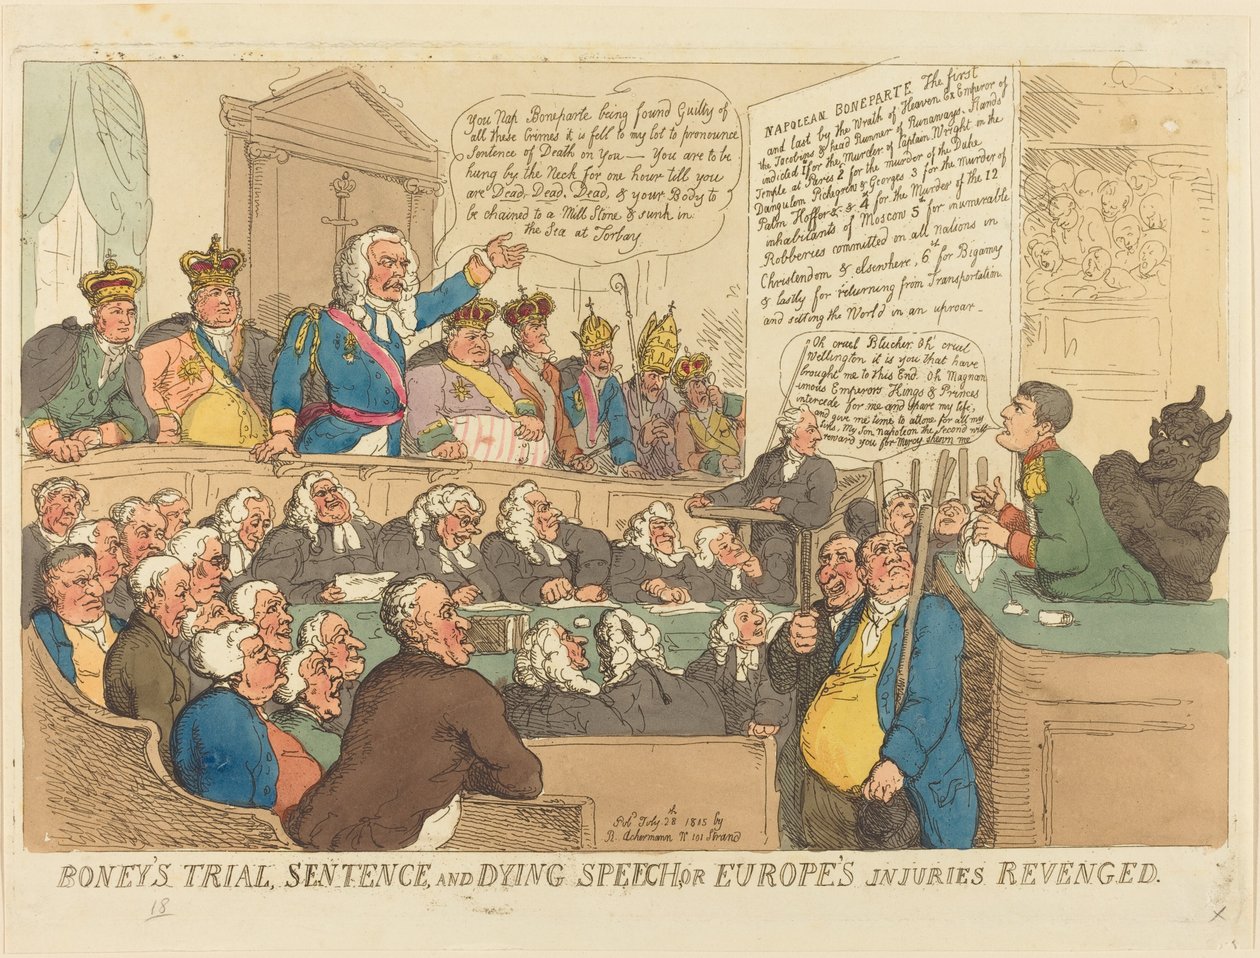 You Nap Boneparte being found Guilty of
all these Crimes it is fell to my lot to pronounce
Sentence of Death on You — You are to be
hung by the Neck for one hour till you
are Dead, Dead, Dead, & your Body to
be chained to a Mill Stone & sunk in
the Sea at Torbay
NAPOLEAN BONEPARTE The first
and last by the Wrath of Heaven Ex Emperor of
the Jacobins & head Runner of Runaways, Stands
indicted 1st for the Murder of Captain Wright in the
Temple at Paris 2d for the murder of the Duke
Dangulem Pichegrew & Georges 3 for the Murder of
Palm Hoffer &c &c 4th for the Murder of the 12
inhabitants of Moscow 5th for inumerable
Robberies committed on all Nations in
Christendom & elsewhere, 6th for Bigamy
& lastly for returning from Transportation
and setting the World in an uproar –
Oh cruel Blucher Oh! cruel
Wellington it is you that have
brought me to this End. Oh Magnan
imous Emperors Kings & Princes
intercede for me and spare my life,
and give me time to attone for all my
Sins, My Son Napoleon the Second will
reward you for Mercy shewn me
Pubd July 28th 1815 by
R. Ackermann No 101 Strand
BONEY'S TRIAL, SENTENCE, AND DYING SPEECH, OR EUROPE'S INJURIES REVENGED.
18
x